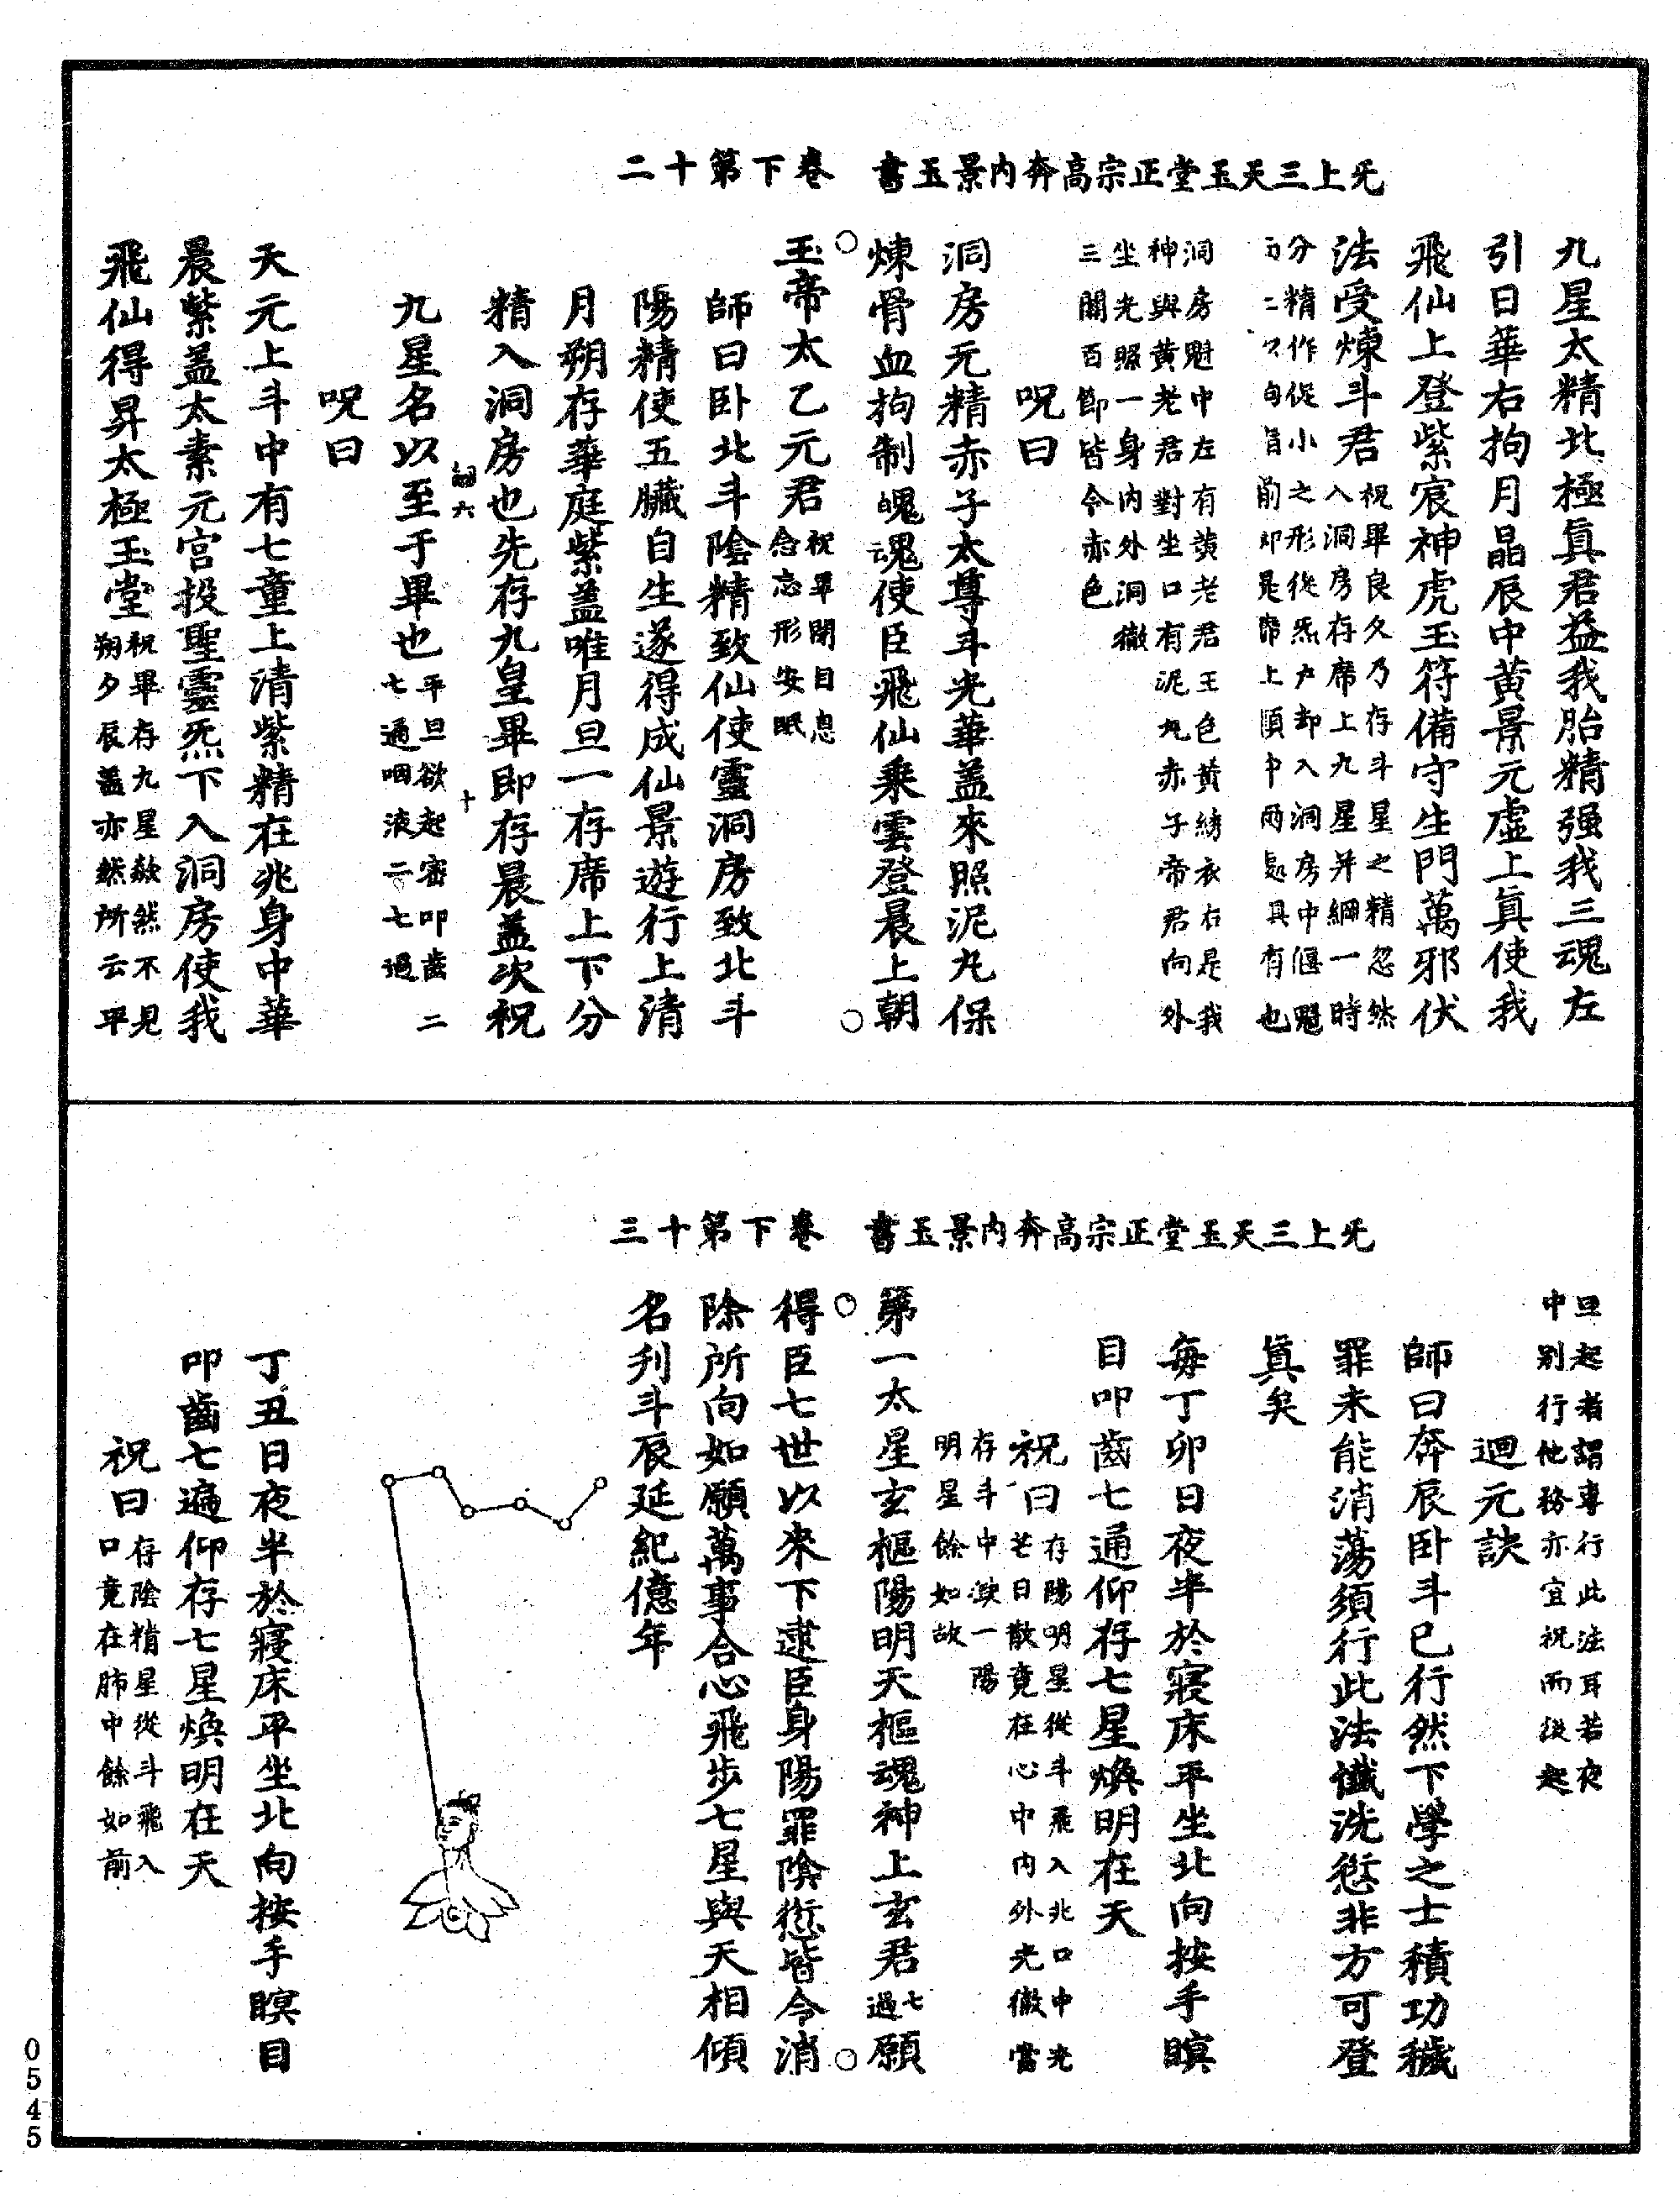 无上三天玉堂正宗高奔內景玉書　卷下第十二
九星太精北極眞君益我胎精强我三魂左
引日華右拘月晶辰中黄景元虚上眞使我
飛仙上登紫宸神虎玉符備守生門萬邪伏
法受煉斗君
祝畢良久乃存斗星之精忽然
入洞房存席上九星并綱一時
分精作促小之形從炁户却入洞房中偃魁
前即是席上順中兩處具有也
洞房魁中左有黄老君王色黄綉衣右是我
神與黄老君對坐口有泥丸赤子帝君向外
坐光照一身内外洞徹
三關百節皆令赤色
呪曰
洞房元精赤子太尊斗光華盖來照泥丸保
煉骨血拘制魄魂使臣飛仙乘雲登晨上朝
玉帝太乙元君
祝畢閉目息
念忘形安眠
師曰卧北斗陰精致仙使靈洞房致北斗
陽精使五臟自生遂得成仙景遊行上清
月朔存華庭紫盖唯月旦一存席上下分
精入洞房也先存九皇畢即存晨盖次祝
六　十
九星名以至于畢也
平旦欲起密叩齒二
七通咽液二七過
呪曰
天元上斗中有七童上清紫精在兆身中華
晨紫盖太素元宫投聖靈炁下入洞房使我
飛仙得昇太極玉堂
祝畢存九星歘然不見
朔夕辰盖亦然所云平
无上三天玉堂正宗高奔內景玉書　卷下第十三
旦起者謂專行此法耳若夜
中别行他務亦宜祝而後起
迴元訣
師曰奔辰卧斗已行然下學之士積功穢
罪未能消蕩須行此法懺洗愆非方可登
眞矣
每丁卯日夜半於寢床平坐北向按手瞑
目叩齒七通仰存七星煥明在天
祝曰
存陽明星從斗飛入兆口中光
芒日散竟在心中内外光徹當
存斗中淚一陽
明星餘如故
第一太星玄樞陽明天樞魂神上玄君
七
過
願
得臣七世以來下逮臣身陽罪陰愆皆令消
除所向如願萬事合心飛步七星與天相傾
名刋斗辰延紀億年
丁丑日夜半於寢床平坐北向按手瞑目
叩齒七遍仰存七星煥明在天
祝曰
存陰精星從斗飛入
口竟在肺中餘如前
0545